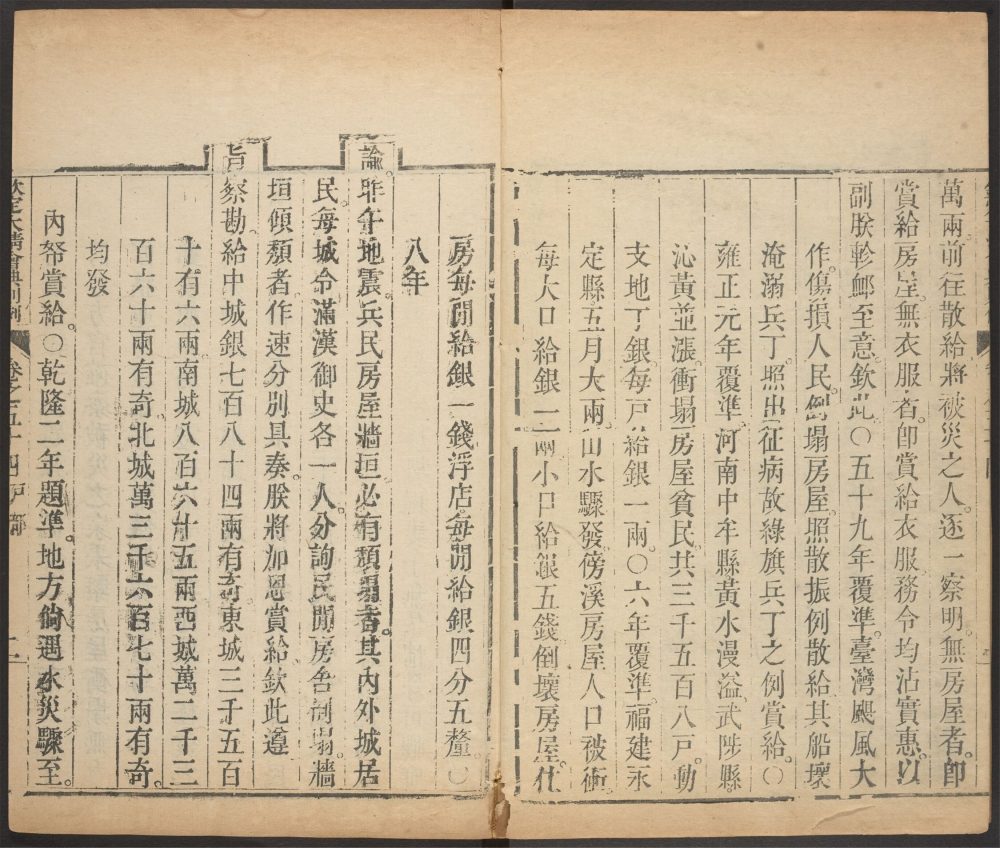 萬兩前往散給將被災之人逐一察明無房屋者卽
賞給房屋無衣服者卽賞給衣服務令均沾實惠以
副朕軫䘏至意欽此○五十九年覆準臺灣颶風大
作傷損人民倒塌房屋照散振例散給其船壞
淹溺兵丁照出征病故綠旗兵丁之例賞給○
雍正元年覆準河南中牟縣黃水漫溢武陟縣
沁黃並漲衝塌房屋貧民共三千五百八戶動
支地丁銀每戶給銀一兩○六年覆準福建永
定縣五月大雨山水驟發傍溪房屋人口被衝
每大口給銀一兩小口給銀五錢倒壞房屋瓦
房每閒給銀一錢浮店每閒給銀四分五釐○
八年
諭昨年地震兵民房屋牆垣必有頹塌者其內外城居
民每城令滿漢御史各一人分詢民閒房舍倒塌牆
垣傾頹者作速分別具奏朕將加恩賞給欽此遵
旨察勘給中城銀七百八十四兩有奇東城三千五百
十有六兩南城八百六十五兩西城萬二千三
百六十兩有奇北城萬三千六百七十兩有奇
均發
內帑賞給○乾隆二年題準地方倘遇水災驟至
欽定大淸會典則例 卷之五十四戶部 二